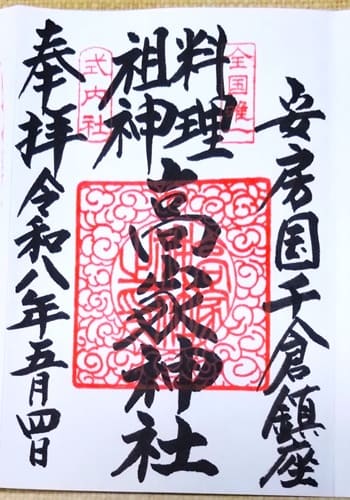 安房国千倉鎮座
全国唯一
料理
祖神
式内社
高家神社
奉拝
令和八年五月四日